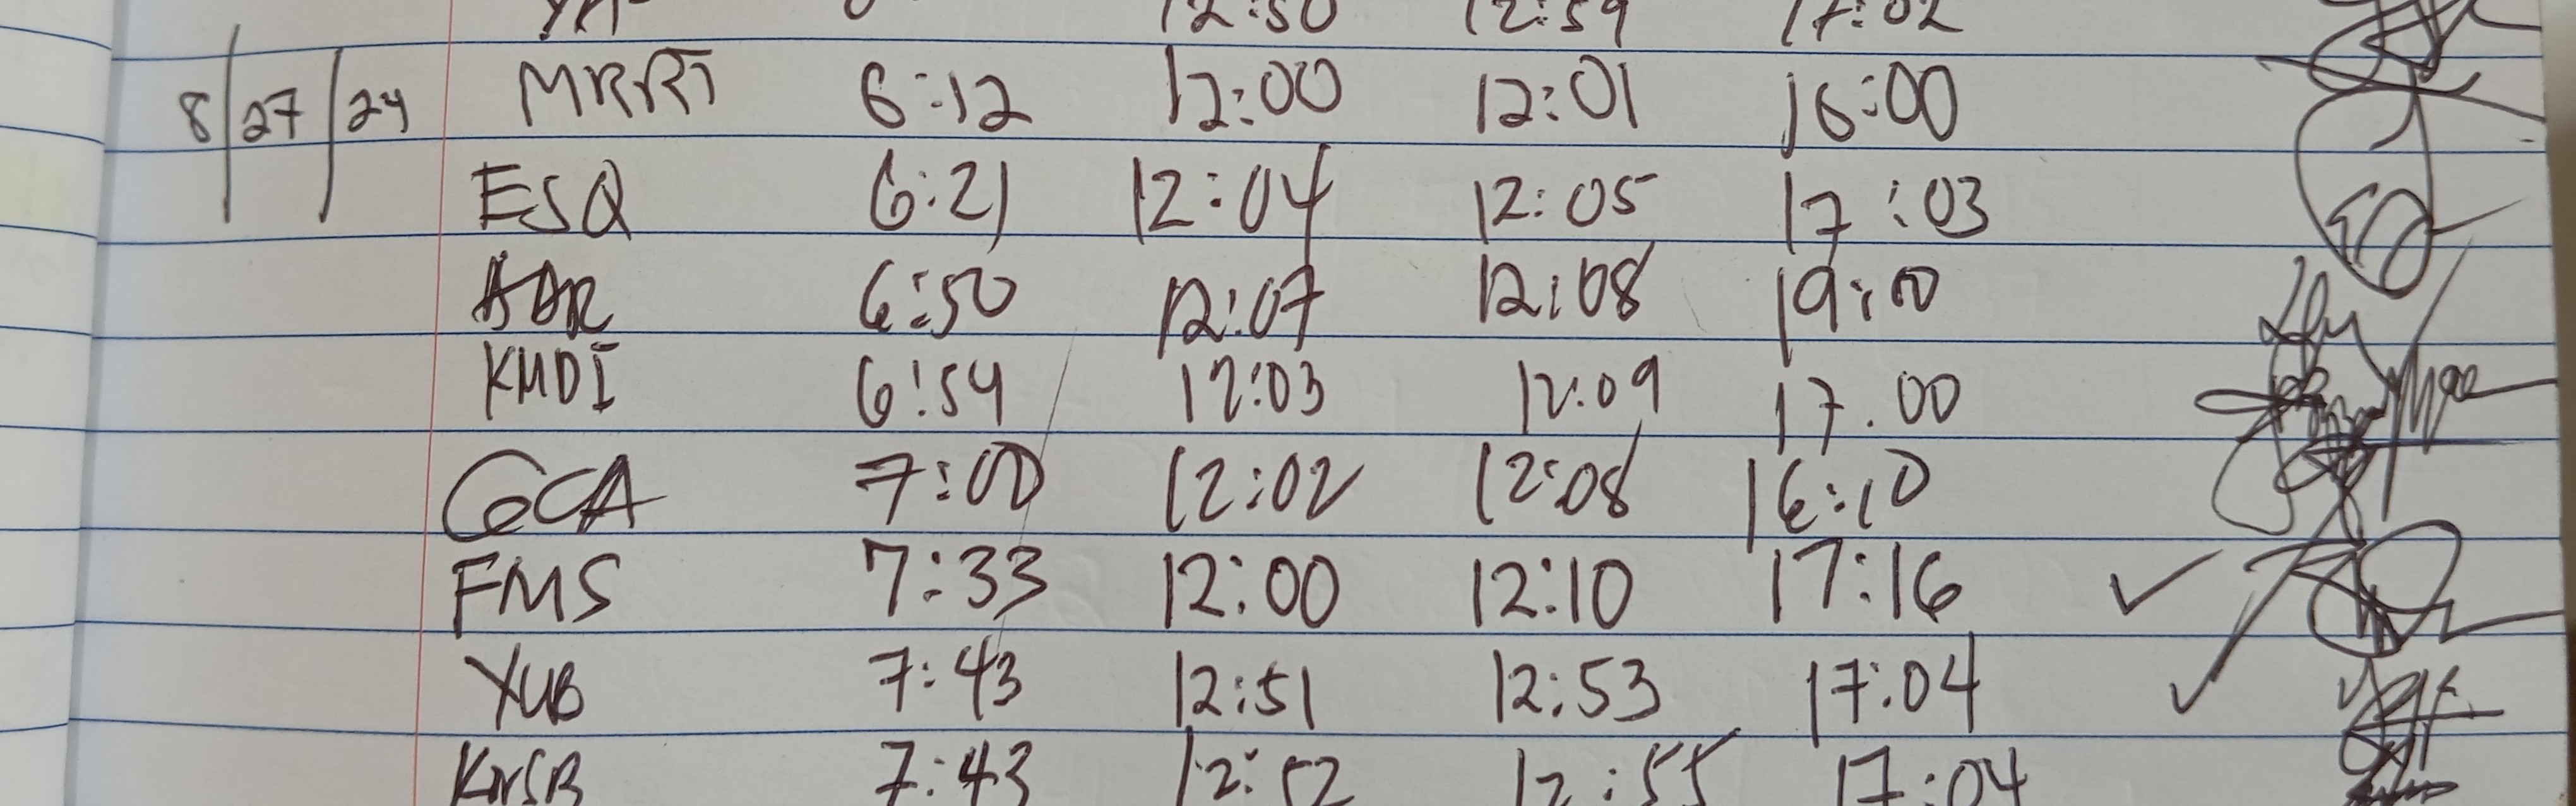 12:50 12:59 17:02
8/27/24 MRRT 6:12 12:00 12:01 16:00
ESQ 6:21 12:04 12:05 17:03
ADR 6:50 12:07 12:08 19:00
KMDI 6:54 12:03 12:09 17.00
GCA 7:00 12:02 12:08 16:10
FMS 7:33 12:00 12:10 17:16 ✓
YUB 7:43 12:51 12:53 17:04 ✓
7:43 12:52 12:55 17:04